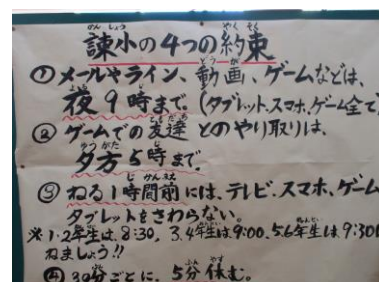 諫小の4つの約束
①メールやライン、動画、ゲームなどは、
夜9時まで。(タブレット、スマホ、ゲーム全て
②ゲームでの友達とのやり取りは、
夕方5時まで。
③ねる1時間前には、テレビ、スマホ、ゲーム
タブレットをさわらない。
※1・2年生は、8:30、3.4年生は9:00、5.6年生は、9:30
ねましょう!!
④30分ごとに、5分休む。